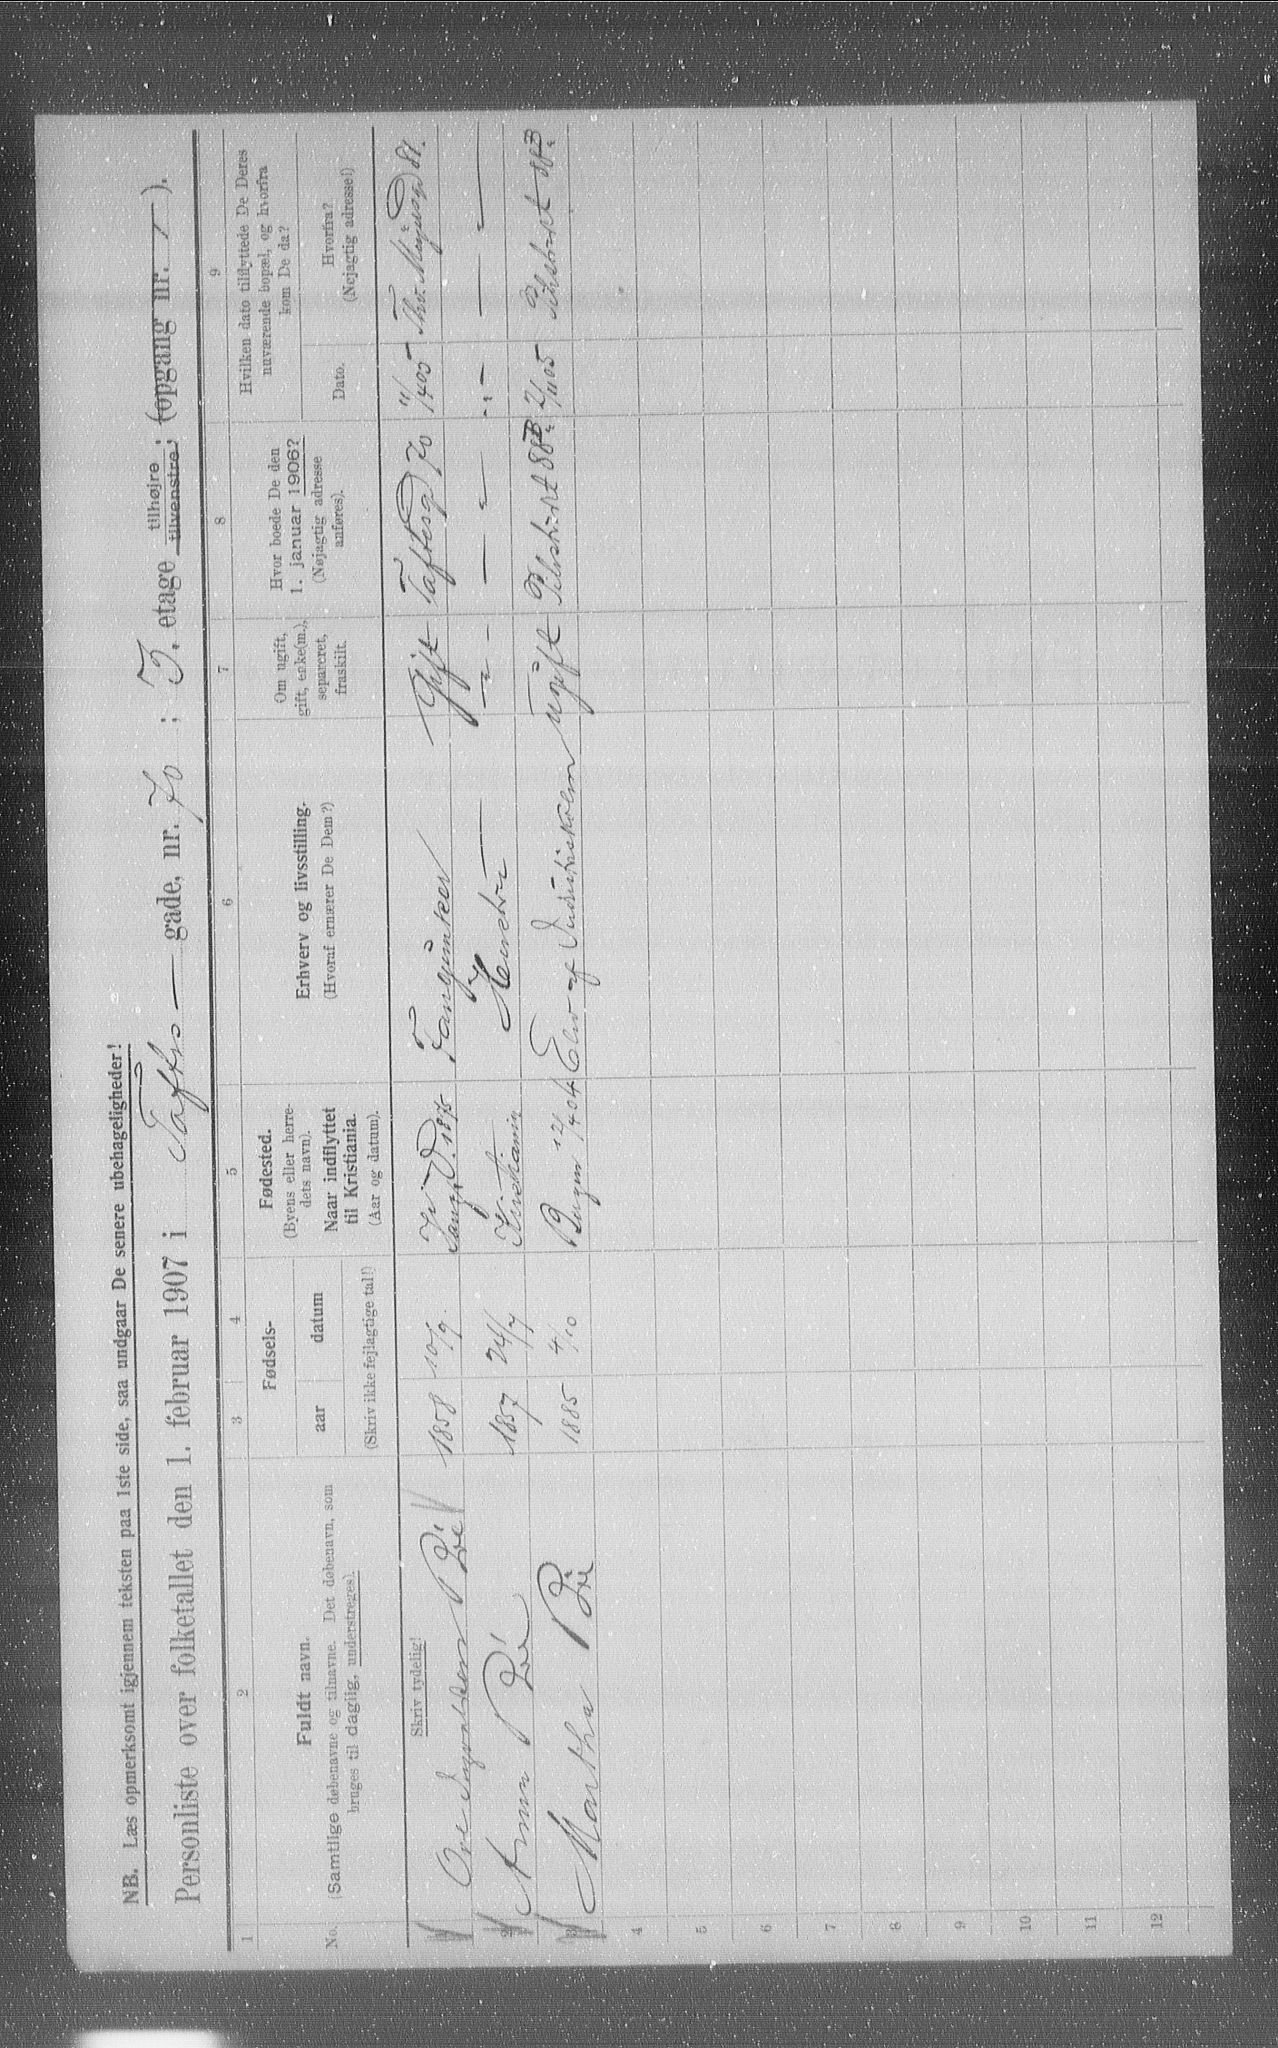 NB. Læs opmerksomt igjennem teksten paa 1ste side, saa undgaar De senere ubehageligheder!
Personliste over folketallet den 1. februar 1907 i Toftes — gade, nr. 70 ; 3. etage tilhøjre tilvenstre ; (opgang nr. 1 ).
1 2 3 4 5 6 7 8 9
No.
Fuldt navn.
(Samtlige døbenavne og tilnavne. Det døbenavn, som
bruges til daglig, understreges).
Fødsels-
aar datum
(Skriv ikke fejlagtige tal!)
Fødested.
(Byens eller herre-
dets navn).
Naar indflyttet
til Kristiania.
(Aar og datum).
Erhverv og livsstilling.
(Hvoraf ernærer De Dem?)
Om ugift,
gift, enke(m.),
separeret,
fraskilt.
Hvor boede De den
1. januar 1906?
(Nøjagtig adresse
anføres).
Hvilken dato tilflyttede De Deres
nuværende bopæl, og hvorfra
kom De da?
Dato.
Hvorfra?
(Nøjagtig adresse!)
Skriv tydelig!
1858 10/9. 1875 Gift Toftesg 70 11/4 05 Thv. Meyersgd 81.
2 Anna 1857 24/7 Kristiania — " — — " — " — — " —
3 Martha 1885 4/10 Bergen 12/4 04 Elev af Industriskolen ugift Pilestræt 88 2/11 05 Pilestræt 88
4
5
6
7
8
9
10
11
12